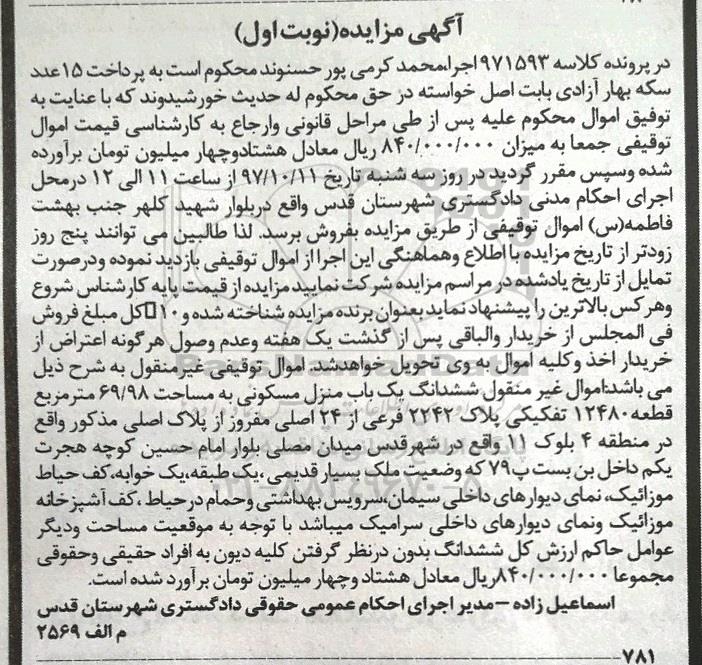 آگهی مزایده(نوبت اول)
در پرونده کلاسه ۹۷۱۵۹۳ اجرا،محمد کرمی پور حسنوند محکوم است به پرداخت ۱۵عدد
سکه بهار آزادی بابت اصل خواسته در حق محکوم له حدیث خورشیدوند که با عنایت به
توفیق اموال محکوم علیه پس از طی مراحل قانونی وارجاع به کارشناسی قیمت اموال
توقیفی جمعا به میزان ۸۴۰/۰۰۰/۰۰۰ ریال معادل هشتادوچهار میلیون تومان برآورده
شده وسپس مقرر گردید در روز سه شنبه تاریخ ۹۷/۱۰/۱۱ از ساعت ۱۱ الی ۱۲ درمحل
اجرای احکام مدنی دادگستری شهرستان قدس واقع دربلوار شهید کلهر جنب بهشت
فاطمه(س) اموال توقیفی از طریق مزایده بفروش برسد. لذا طالبین می توانند پنج روز
زودتر از تاریخ مزایده با اطلاع وهماهنگی این اجرا از اموال توقیفی بازدید نموده ودرصورت
تمایل از تاریخ یادشده در مراسم مزایده شرکت نمایید مزایده از قیمت پایه کارشناس شروع
وهرکس بالاترین را پیشنهاد نماید بعنوان برنده مزایده شناخته شده و۱۰ کل مبلغ فروش
فی المجلس از خریدار والباقی پس از گذشت یک هفته وعدم وصول هرگونه اعتراض از
خریدار اخذ وکلیه اموال به وی تحویل خواهدشد. اموال توقیفی غیرمنقول به شرح ذیل
می باشد:اموال غیر منقول ششدانگ یک باب منزل مسکونی به مساحت ۶۹/۹۸ مترمربع
قطعه۱۲۴۸۰ تفکیکی پلاک ۲۲۴۲ فرعی از ۲۴ اصلی مفروز از پلاک اصلی مذکور واقع
در منطقه ۴ بلوک ۱۱ واقع در شهرقدس میدان مصلی بلوار امام حسین کوچه هجرت
یکم داخل بن بست پ۷۹ که وضعیت ملک بسیار قدیمی ،یک طبقه،یک خوابه،کف حیاط
موزائیک، نمای دیوارهای داخلی سیمان،سرویس بهداشتی وحمام درحیاط ،کف آشپزخانه
موزائیک ونمای دیوارهای داخلی سرامیک میباشد با توجه به موقعیت مساحت ودیگر
عوامل حاکم ارزش کل ششدانگ بدون درنظر گرفتن کلیه دیون به افراد حقیقی وحقوقی
مجموعا ۸۴۰/۰۰۰/۰۰۰ریال معادل هشتاد وچهار میلیون تومان برآورد شده است.
اسماعیل زاده –مدیر اجرای احکام عمومی حقوقی دادگستری شهرستان قدس
م الف ۲۵۶۹
۷۸۱